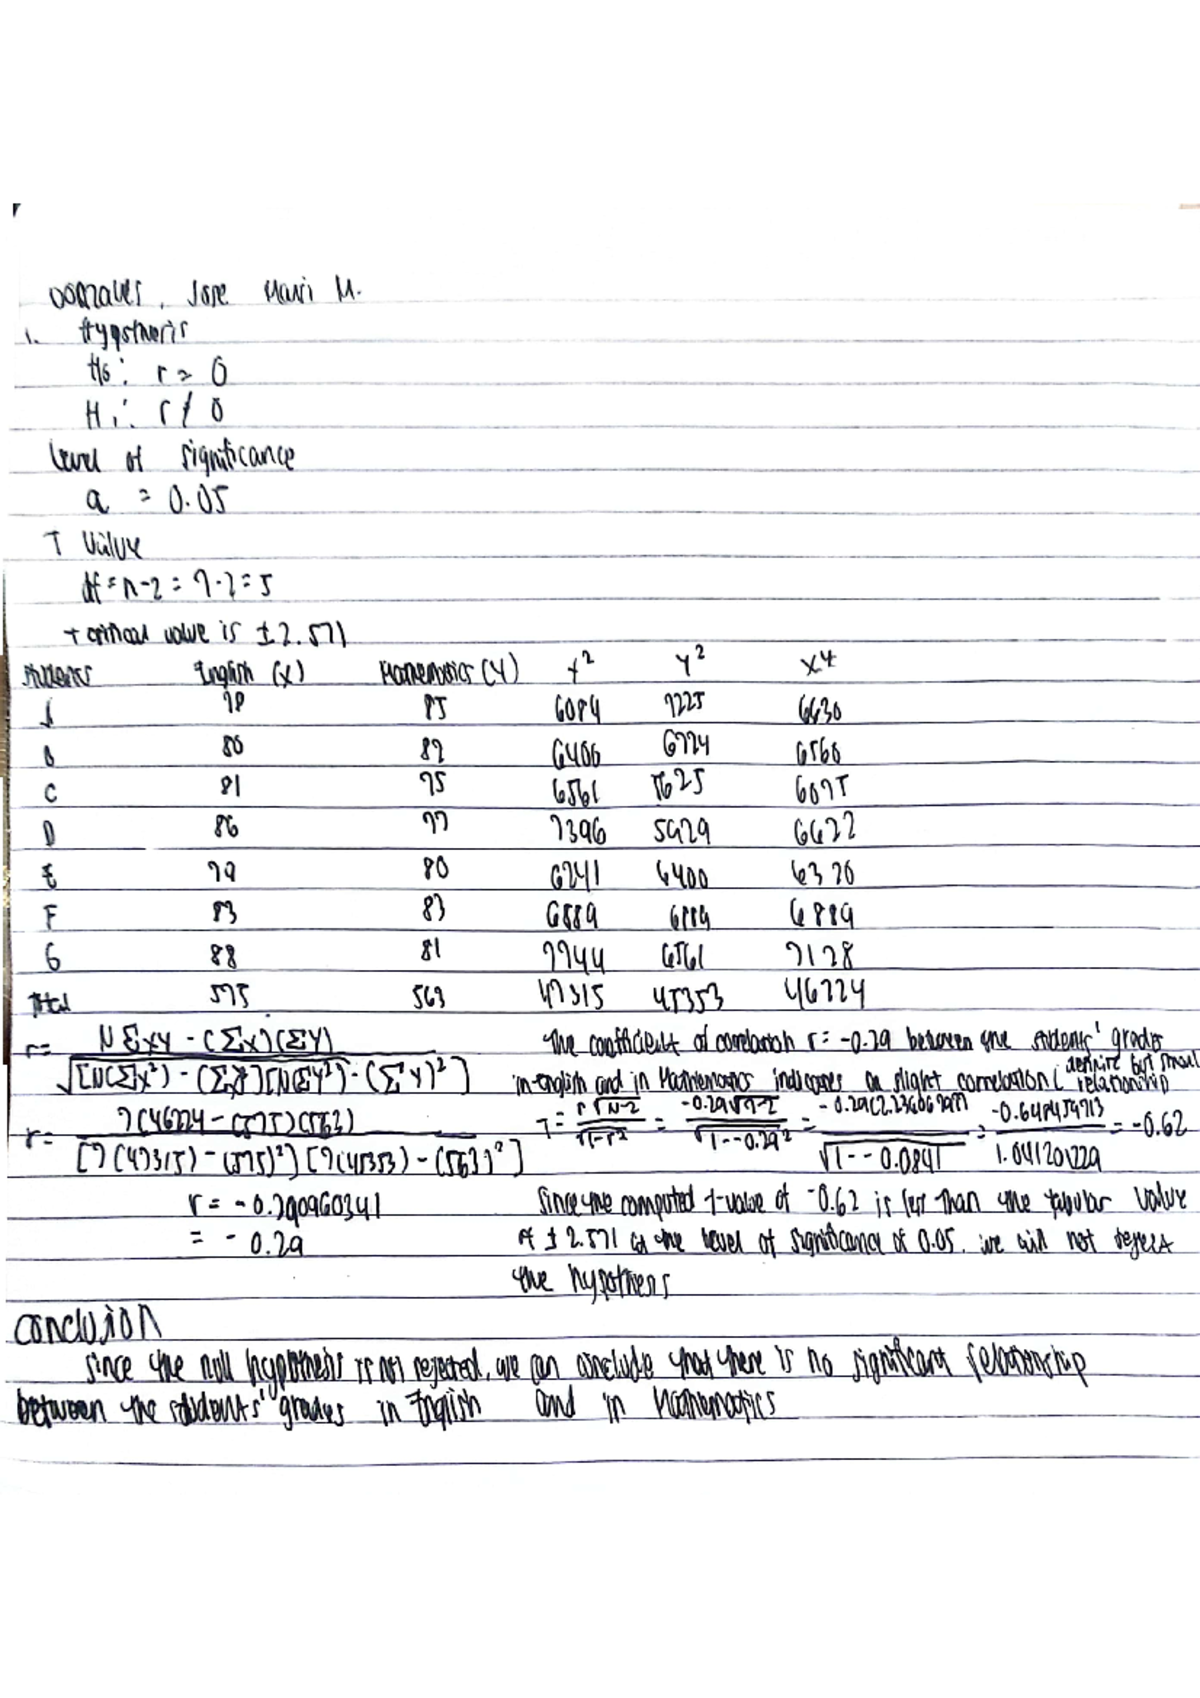 Gonzales, Jose Mari M.
1. Hypothesis
Ho: r = 0
H1: r ≠ 0
Level of significance
a = 0.05
T Value
df = n-2 = 7-2 = 5
t critical value is ±2.571
Students English (X) Mathematics (Y) x² y² xy
A 78 85 6084 7225 6630
B 80 82 6400 6724 6560
C 81 75 6561 5625 6075
D 86 77 7396 5929 6622
E 79 80 6241 6400 6320
F 83 83 6889 6889 6889
G 88 81 7744 6561 7128
Total 575 563 47315 45353 46224
r = N Σxy - (Σx)(Σy) / √[N(Σx²) - (Σx)²][N(Σy²) - (Σy)²]
r = 7(46224 - (575)(563) / [7(47315) - (575)²][7(45353) - (563)²]
r = -0.290960341
= -0.29
The coefficient of correlation r = -0.29 between the students' grades
in English and in Mathematics indicates a slight correlation (definite but small relationship
T = r√N-2 / √1-r² = -0.29√7-2 / √1--0.29² = -0.29(2.236067977 / √1--0.0841 = -0.648459713 / 1.041201229 = -0.62
Since the computed t-value of -0.62 is less than the tabular value
of ±2.571 at the level of significance of 0.05. we will not reject
the hypothesis
Conclusion
Since the null hypothesis is not rejected, we can conclude that there is no significant relationship
between the students' grades in English and in Mathematics